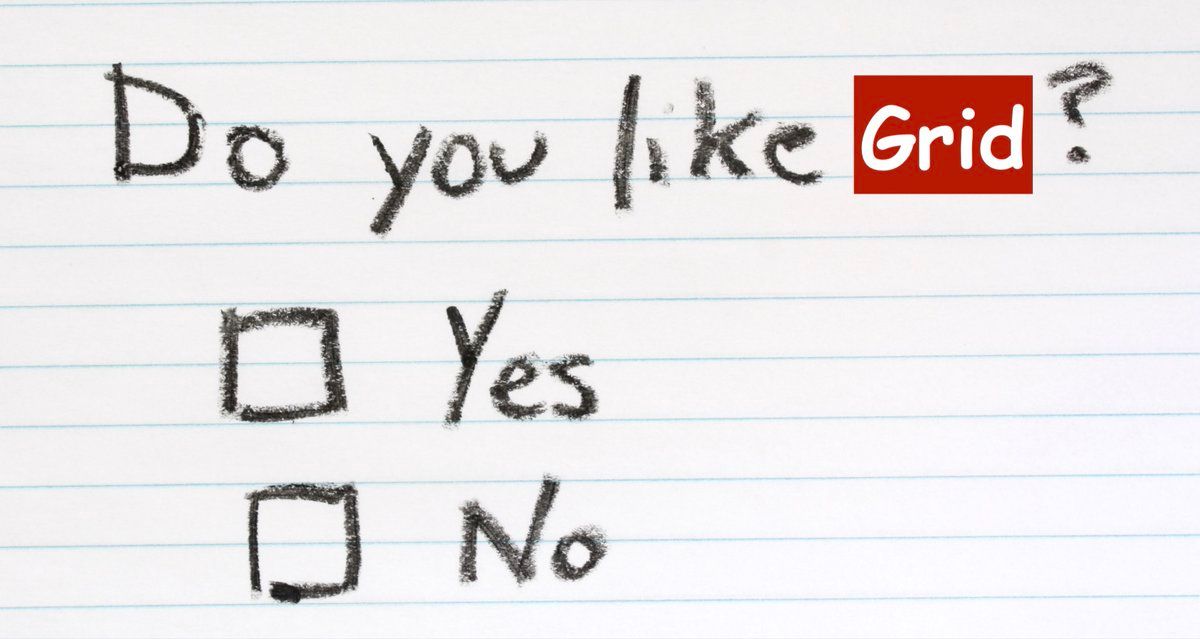 Do you like Grid?
Yes
No